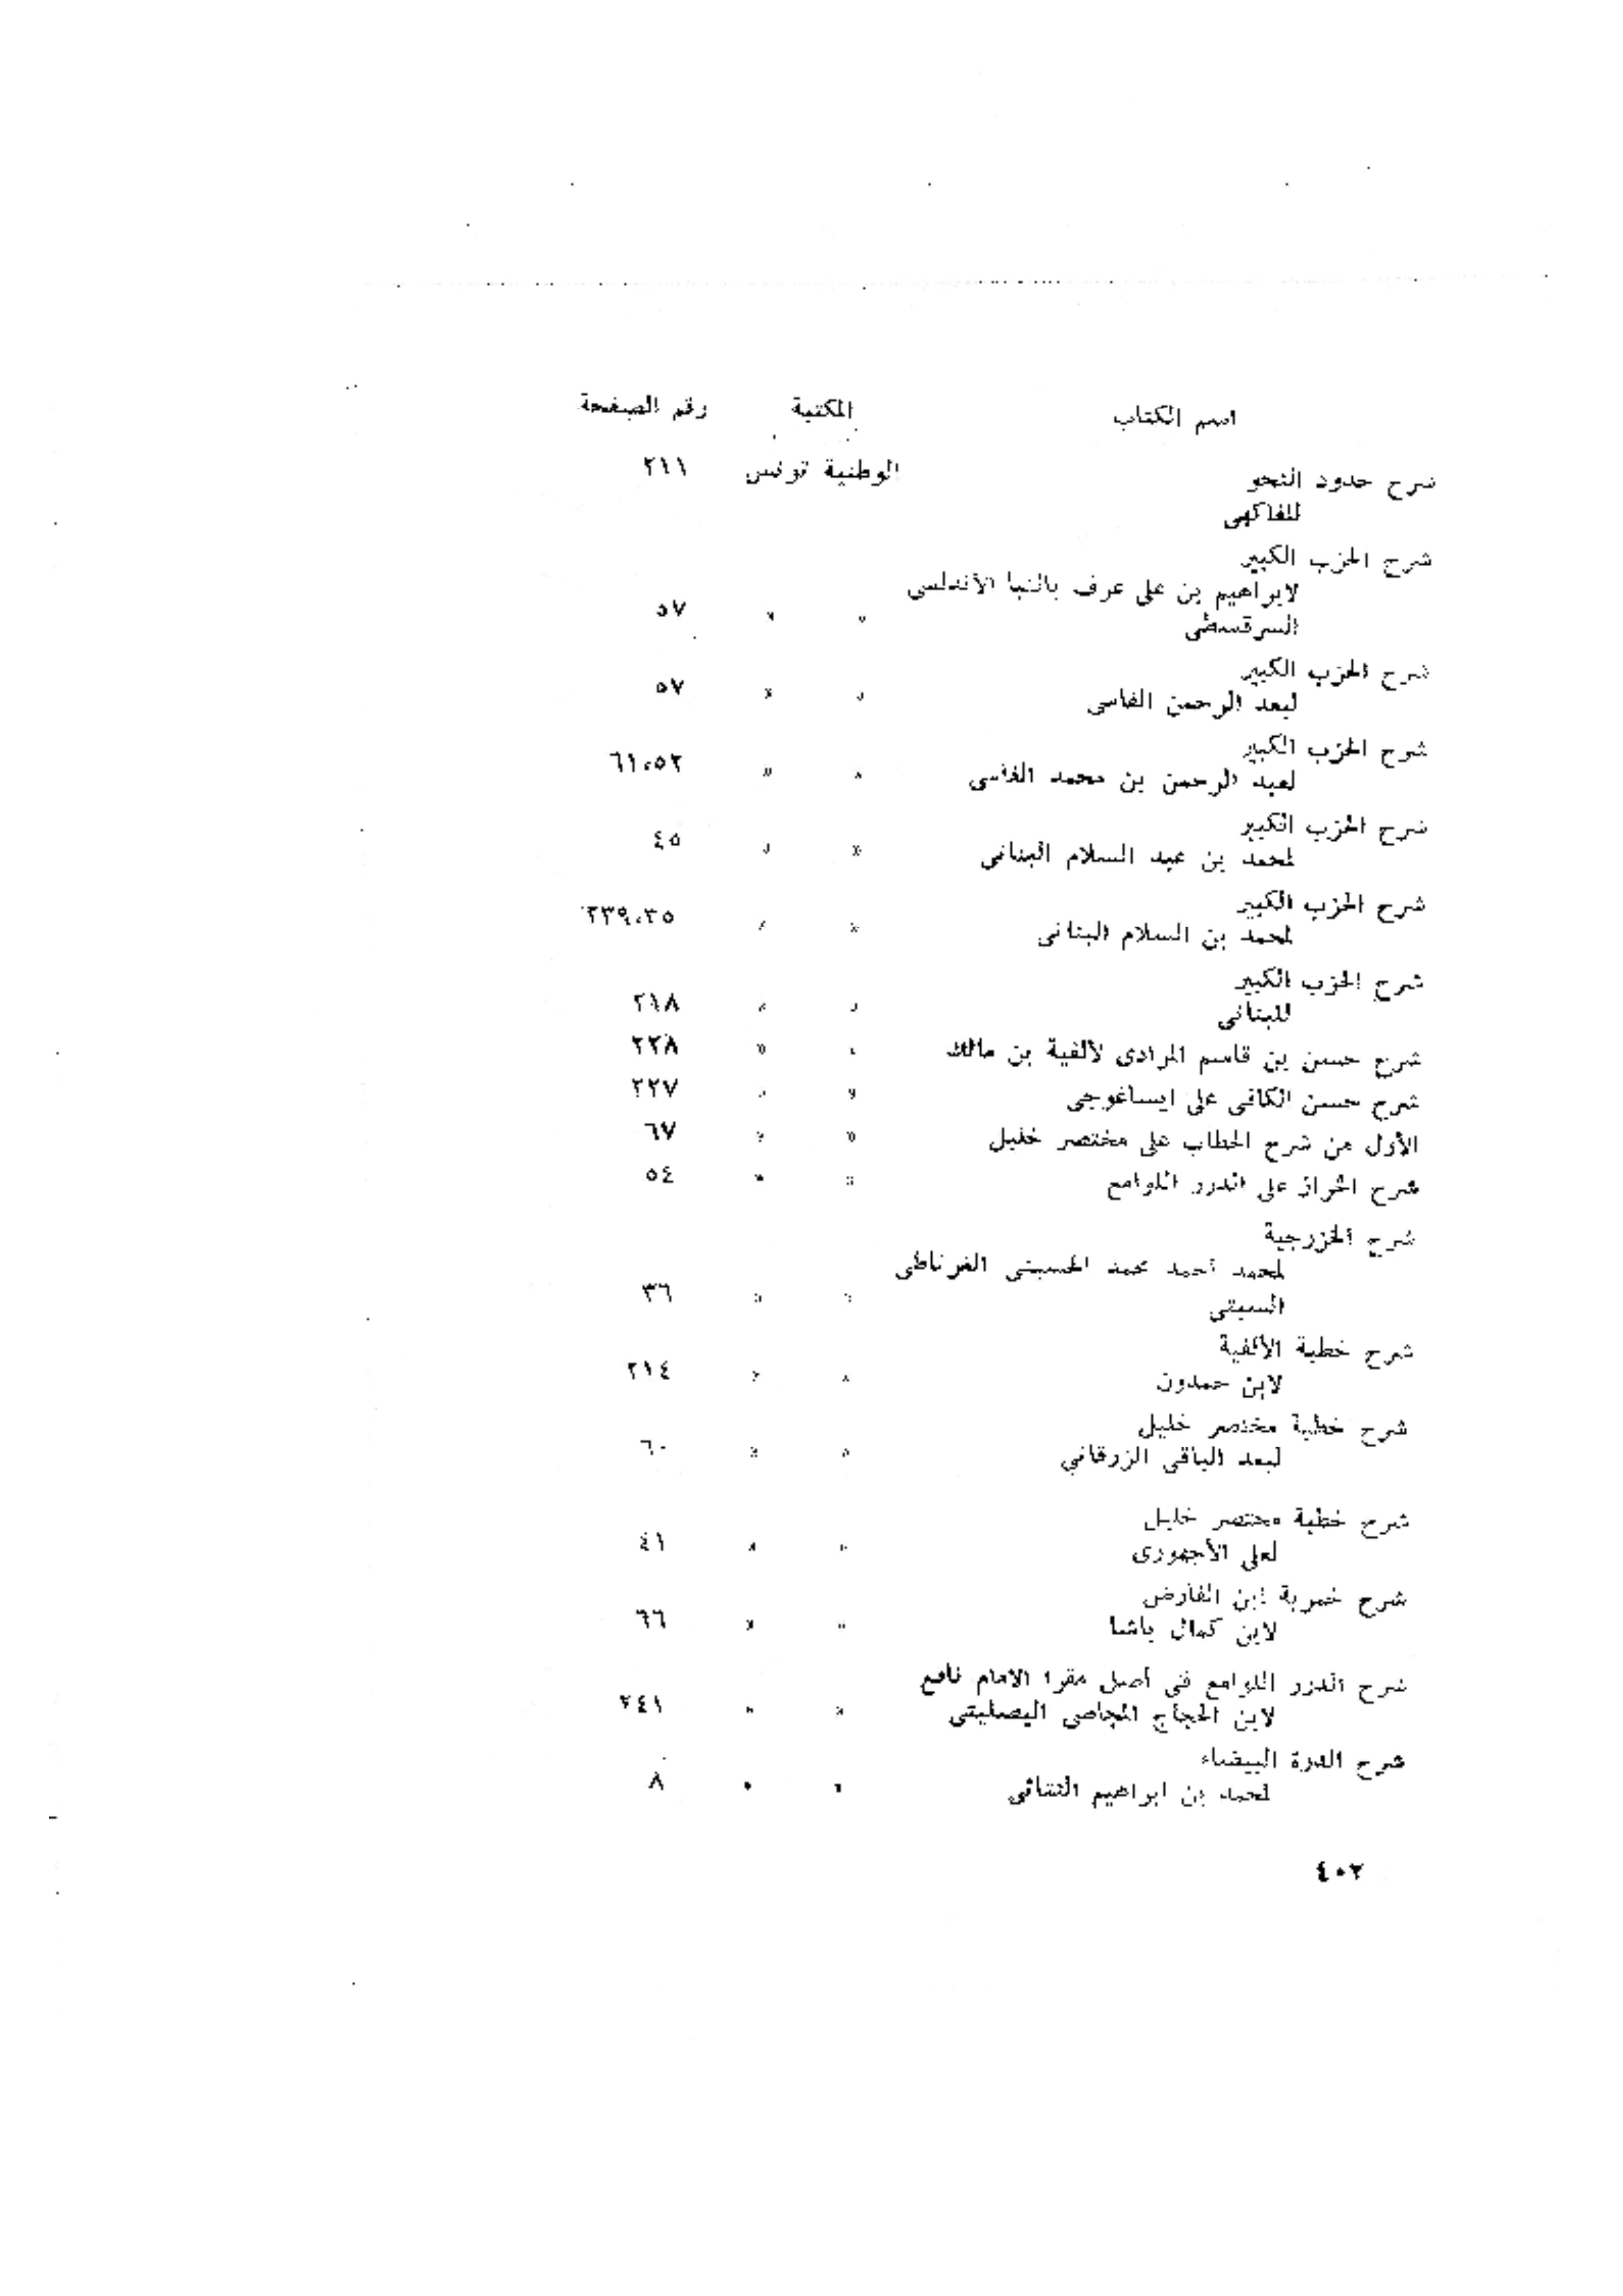 اسم الكتاب المكتبة رقم الصفحة
شرح حدود النحو الوطنية تونس ٢١١
للفاكهى
شرح الحزب الكبير
لابراهيم بن على عرف بالنبا الأندلسى
السرقسطى » » ٥٧
شرح الحزب الكبير
لبعد الرحمن الفاسى » » ٥٧
شرح الحزب الكبير
لعبد الرحمن بن محمد الفاسى » » ٦١،٥٢
شرح الحزب الكبير
لمحمد بن عبد السلام البنانى » » ٤٥
شرح الحزب الكبير
لمحمد بن السلام البنانى » » ٢٣٩،٣٥
شرح الحزب الكبير
للبنانى » » ٢١٨
شرح حسن بن قاسم المرادى لألفية بن مالك » » ٢٢٨
شرح حسن الكافى على ايساغوجى » » ٢٢٧
الأول من شرح الحطاب على مختصر خليل » » ٦٧
شرح الخراز على الدرر اللوامع » » ٥٤
شرح الخزرجية
لمحمد أحمد محمد الحسينى الغرناطى
السبتى » » ٣٦
شرح خطبة الألفية
لابن حمدون » » ٢١٤
شرح خطبة مختصر خليل
لبعد الباقى الزرقاني » » ٦٠
شرح خطبة مختصر خليل
لعلى الأجهورى » » ٤١
شرح خمرية ابن الفارض
لابن كمال باشا » » ٦٦
شرح الدرر اللوامع فى أصل مقرا الامام نافع
لابن الحجاج المجاصى اليصليتى » » ٢٤١
شرح الدرة البيضاء
لمحمد بن ابراهيم التتائى » » ٨
٤٠٢